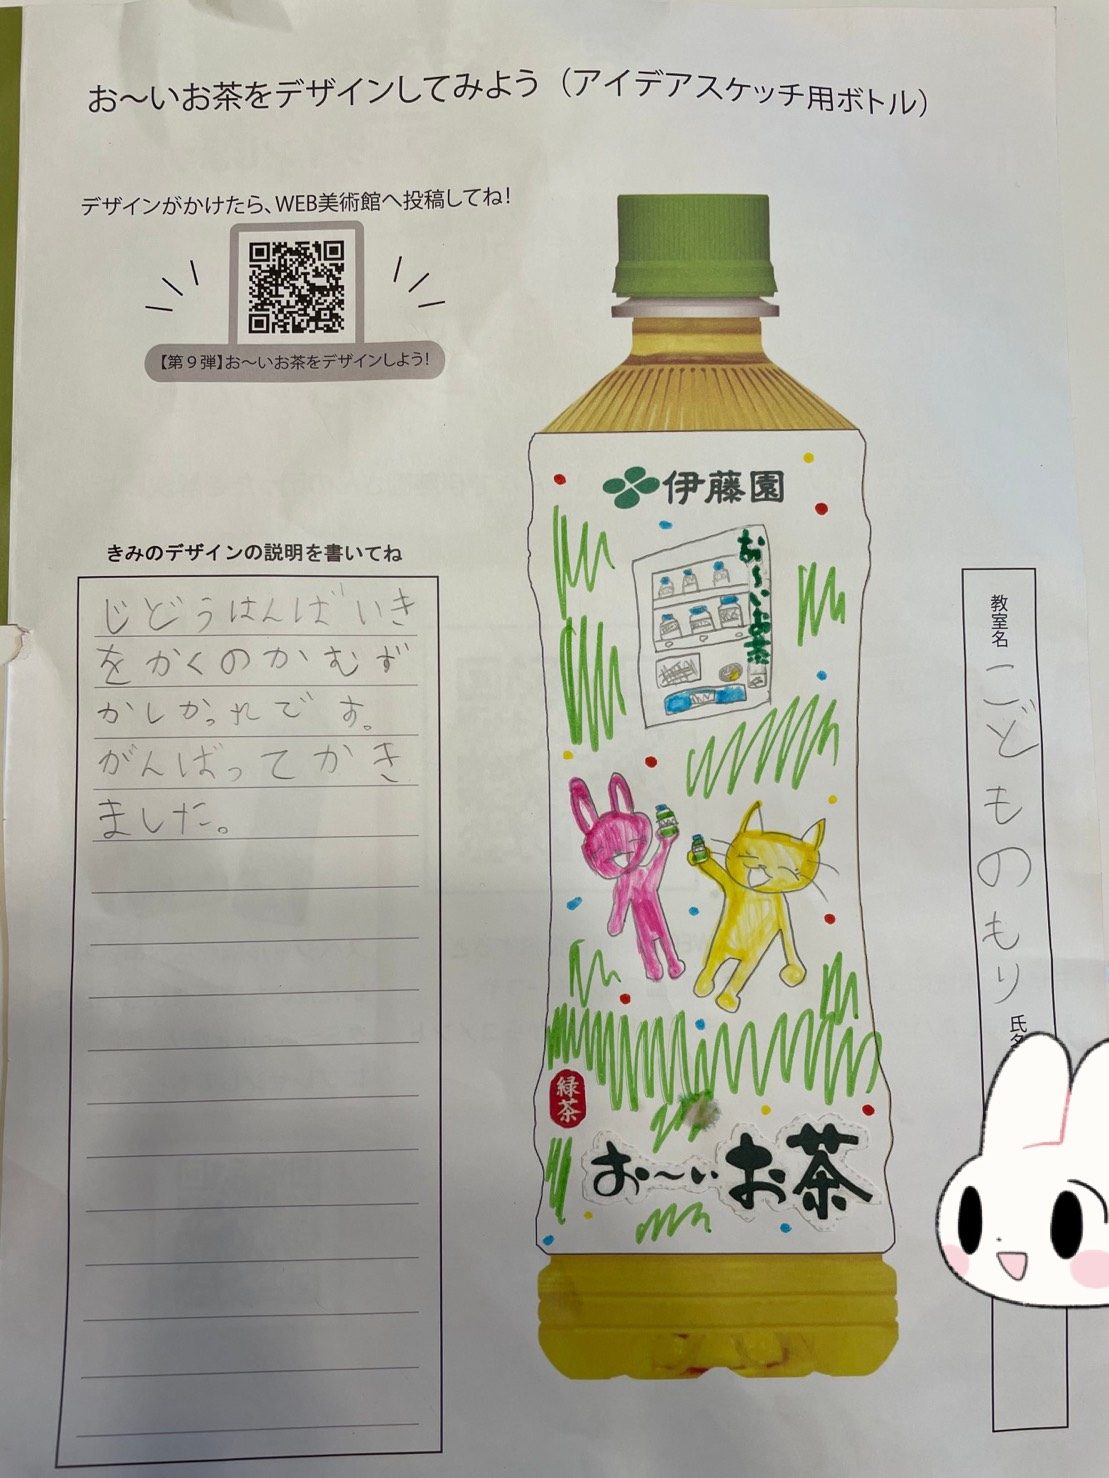 お～いお茶をデザインしてみよう（アイデアスケッチ用ボトル）
デザインがかけたら、WEB美術館へ投稿してね！
【第９弾】お～いお茶をデザインしよう！
きみのデザインの説明を書いてね
じどうはんばいき
をかくのかむず
かしかっれです。
がんばってかき
ました。
伊藤園
お～いお茶
緑茶
お～いお茶
教室名
こどものもり
氏名